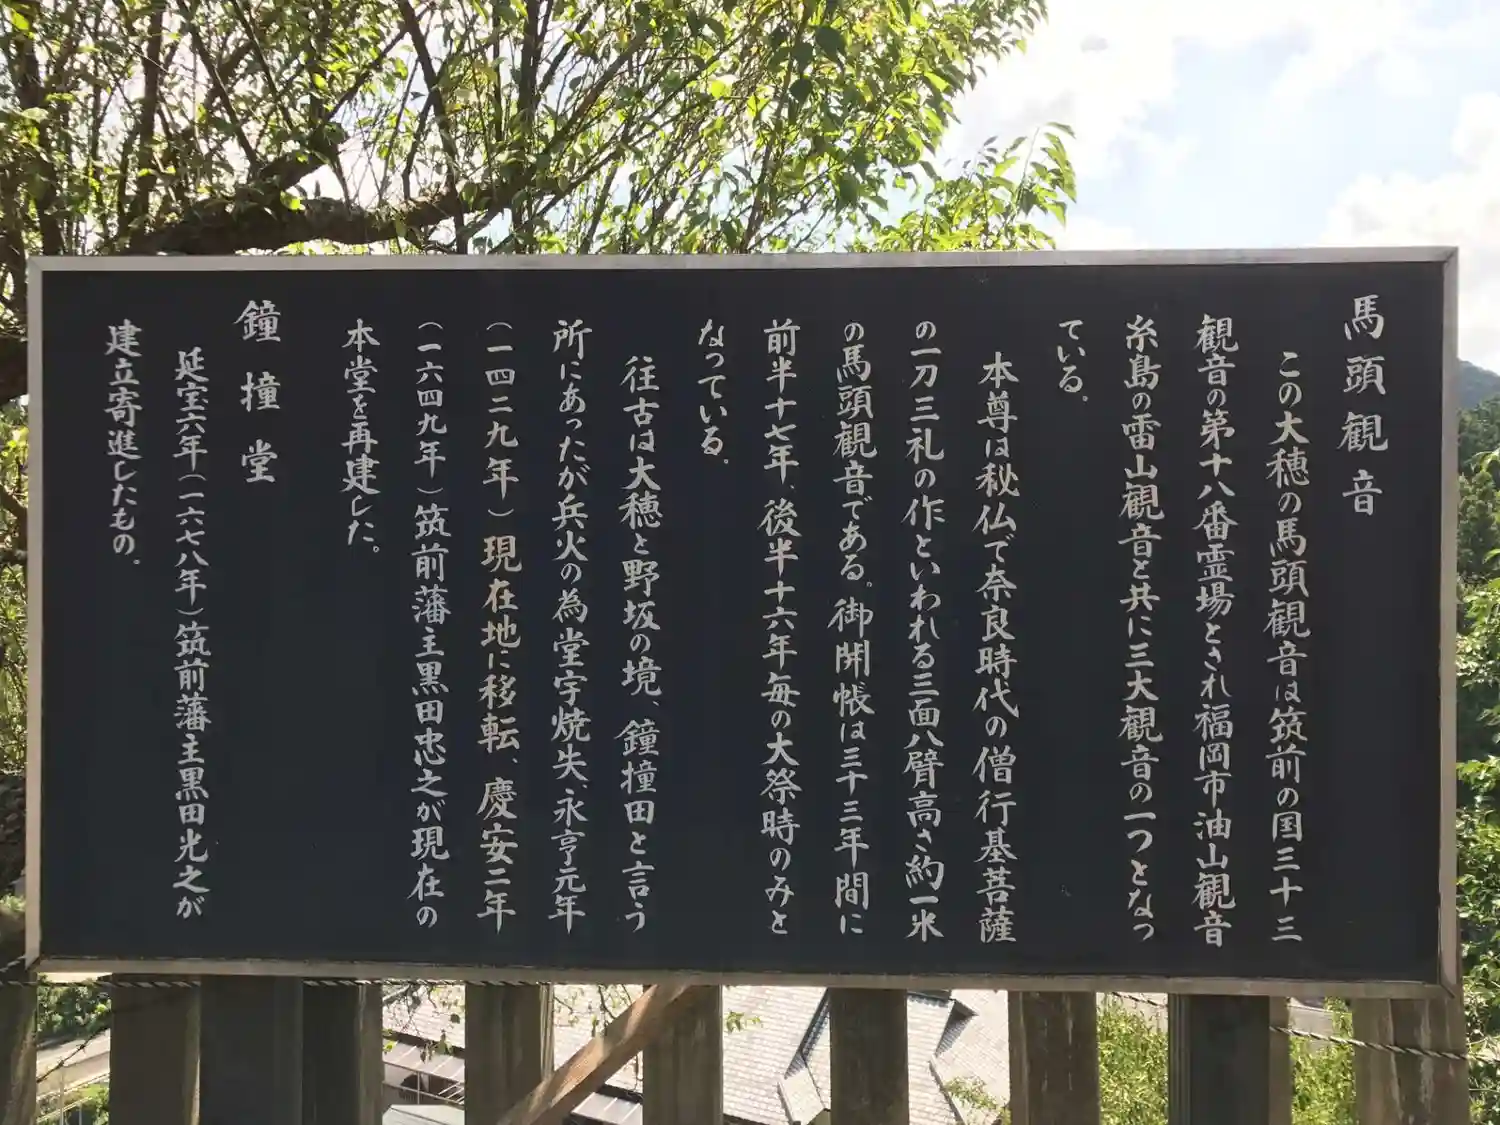 馬頭観音
この大穂の馬頭観音は筑前の国三十三
観音の第十八番霊場とされ福岡市油山観音
糸島の雷山観音と共に三大観音の一つとなっ
ている。
本尊は秘仏で奈良時代の僧行基菩薩
の一刀三礼の作といわれる三面八臂高さ約一米
の馬頭観音である。御開帳は三十三年間に
前半十七年、後半十六年毎の大祭時のみと
なっている。
往古は大穂と野坂の境、鐘撞田と言う
所にあったが兵火の為堂宇焼失、永亨元年
(一四二九年)現在地に移転、慶安二年
(一六四九年)筑前藩主黒田忠之が現在の
本堂を再建した。
鐘撞堂
延宝六年(一六七八年)筑前藩主黒田光之が
建立寄進したもの。